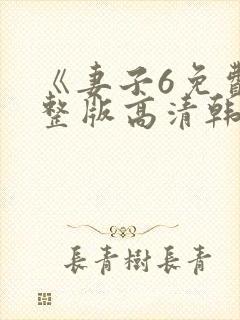 《妻子6免費
整版高清韩
長青樹長青